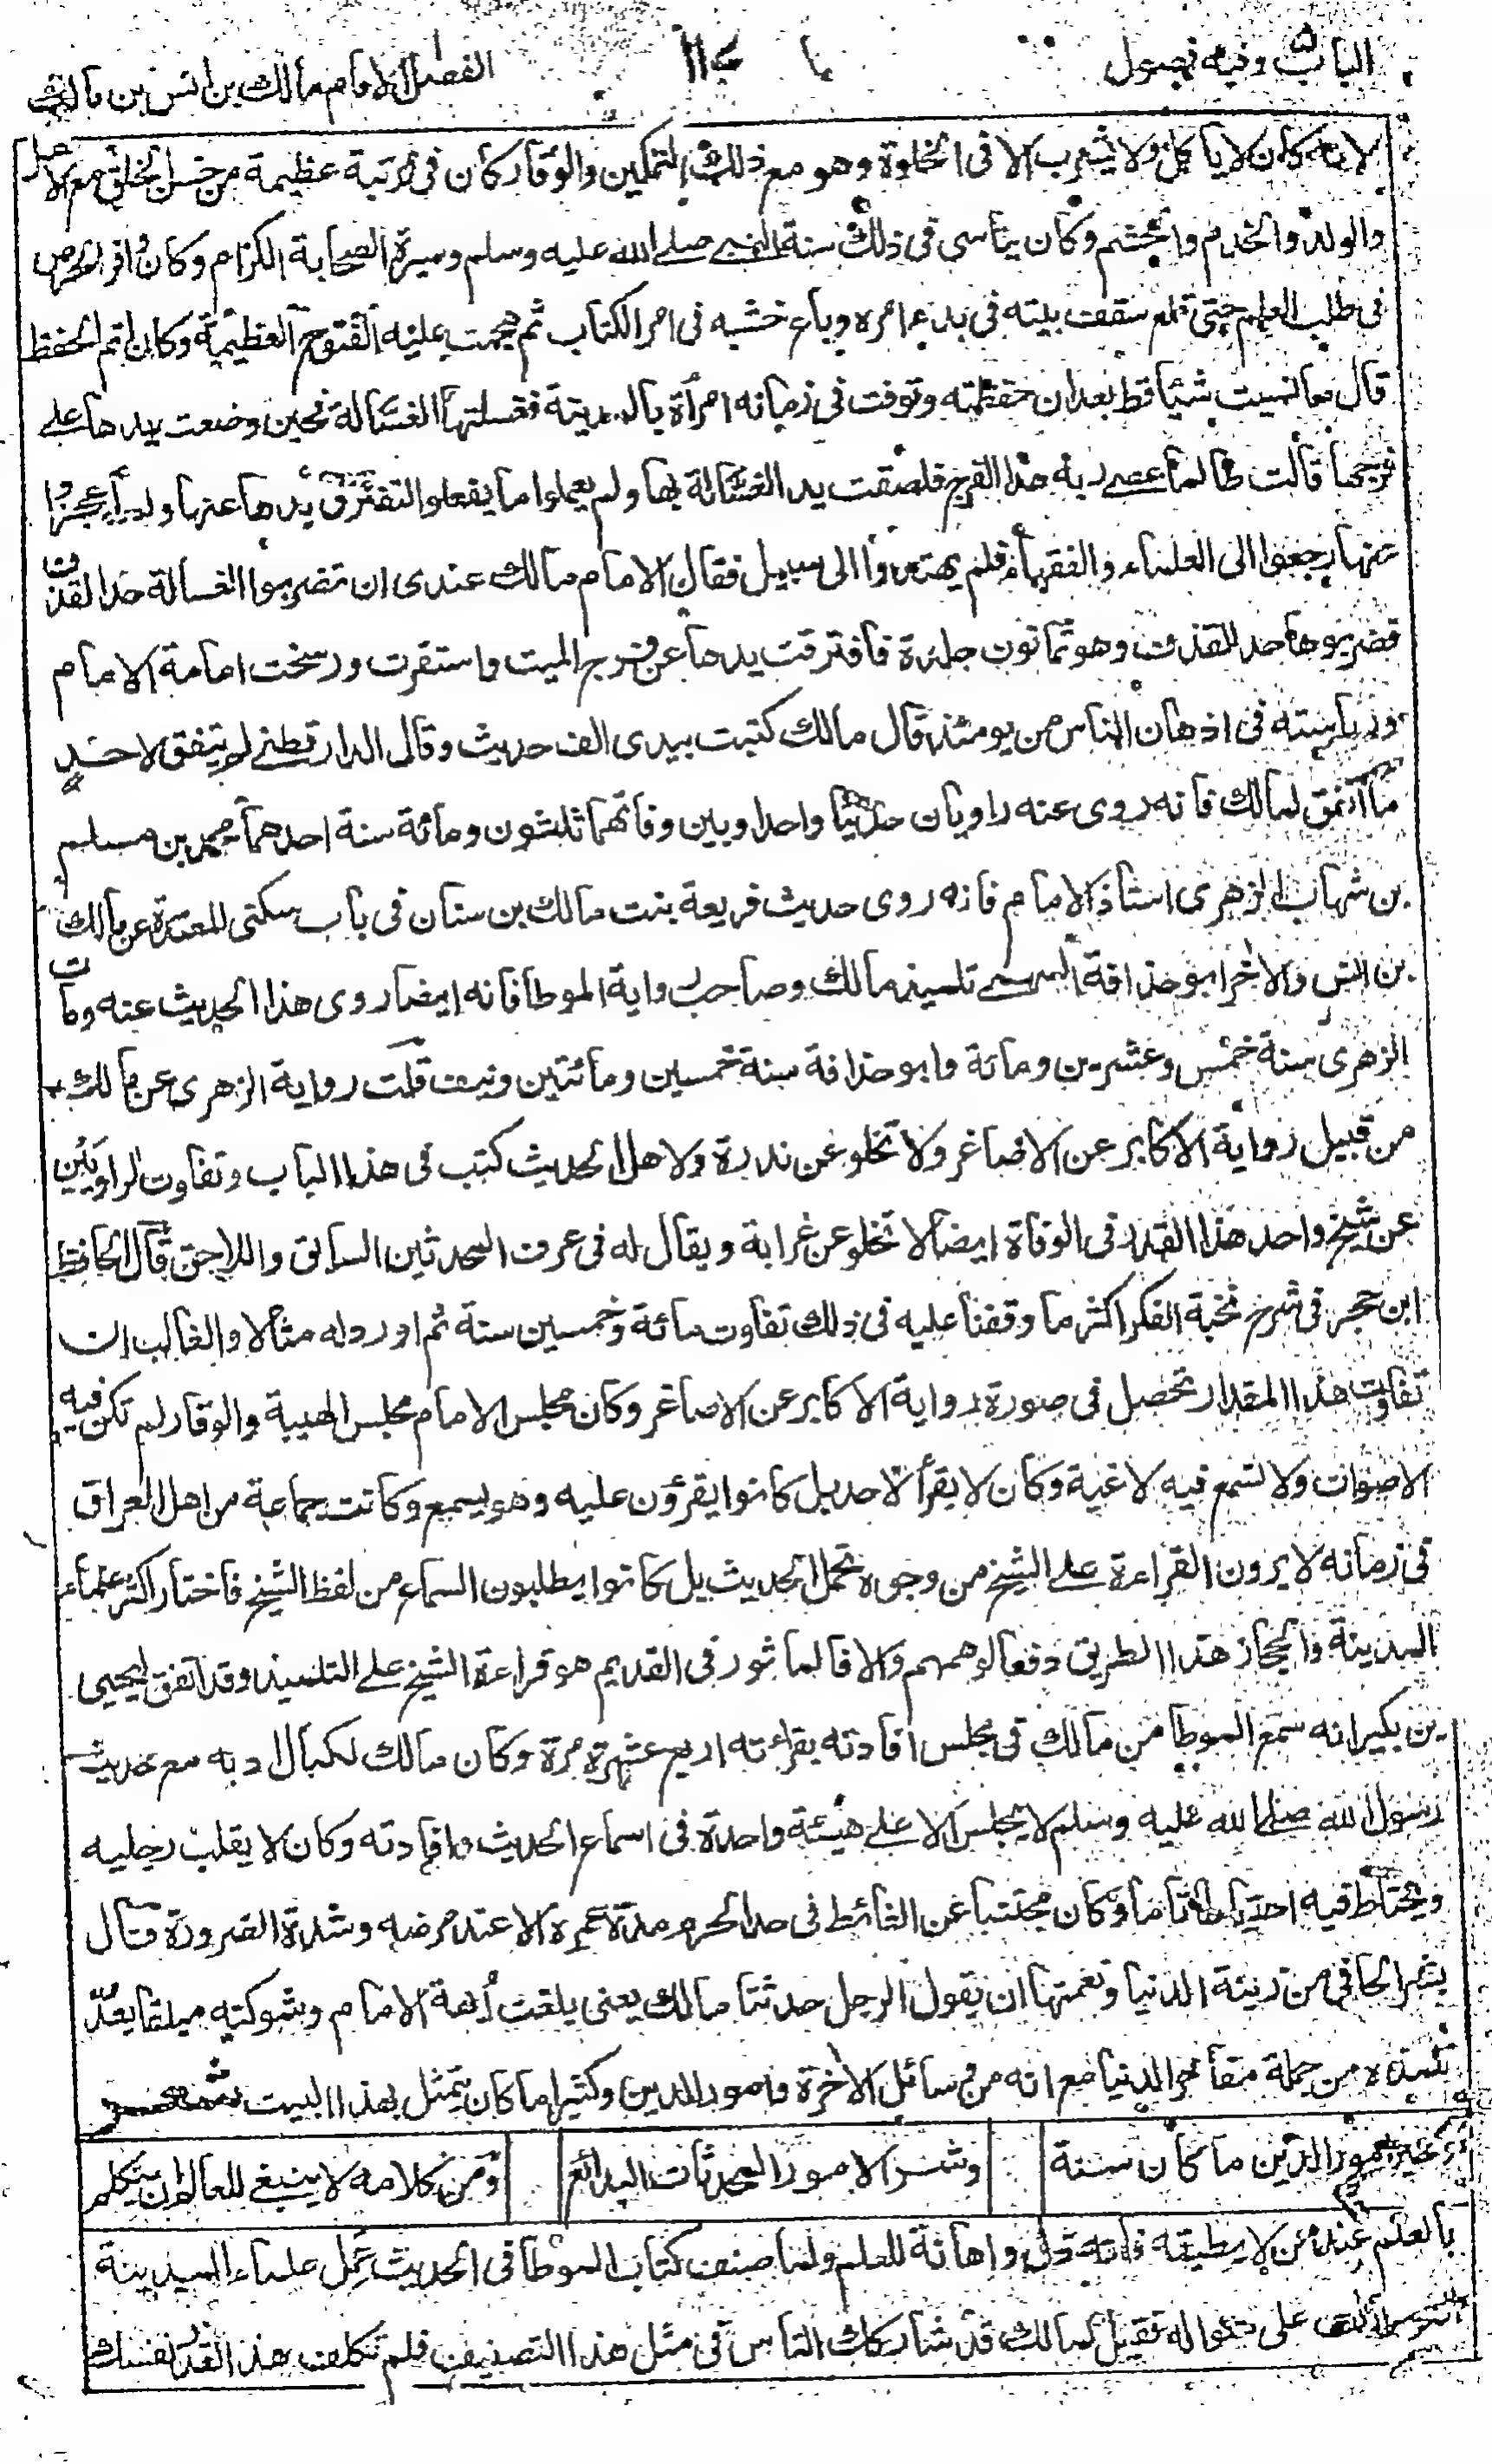 الباب وفيه فصول
١١٤
الفصل الامام مالك بن انس بن مالك
كان لا يأكل ولا يشرب الا فى الخلوة وهو مع ذلك التمكين والوقار كان فى مرتبة عظيمة من حسن الخلق مع الاهل
والولد والخدم والحشم وكان يتأسى فى ذلك سنة النبي صلى الله عليه وسلم وسيرة الصحابة الكرام وكان وافر الحرص
فى طلب العلم حتى قلع سقف بيته فى بدء امره وباع خشبه فى امر الكتاب ثم هجمت عليه الفتوح العظيمة وكان اتم الحفظ
قال ما نسيت شيئا قط بعد ان حفظته وتوفت فى زمانه امرأة بالمدينة فغسلتها الغسالة فحين وضعت يدها على
فرجها قالت طالما عصى ربه هذا الفرج فلصقت يد الغسالة بها ولم يعلموا ما يفعلوا التفترق يدها عنها ولما عجزوا
عنها رجعوا الى العلماء والفقهاء فلم يهتدوا الى سبيل فقال الامام مالك عندى ان تضربوا الغسالة حد القذف
فضربوها حد القذف وهو ثمانون جلدة فافترقت يدها عن فرج الميت واستقرت ورسخت امامة الامام
ورياسته فى اذهان الناس من يومئذ قال مالك كتبت بيدى الف حديث وقال الدارقطني لم يتفق لاحد
ما اتفق لمالك فانه روى عنه راويان حديثا واحدا وبين وفاتهما ثلثون ومائة سنة احدهما محمد بن مسلم
بن شهاب الزهرى استاذ الامام فانه روى حديث فريعة بنت مالك بن سنان فى باب سكنى المعتدة عن مالك
بن انس والاخر ابو حذافة السهمي تلميذ مالك وصاحب رواية الموطا فانه ايضا روى هذا الحديث عنه ومات
الزهرى سنة خمس وعشرين ومائة وابو حذافة سنة خمسين ومائتين ونيف قلت رواية الزهرى عن مالك
من قبيل رواية الاكابر عن الاصاغر ولا تخلو عن ندرة ولاهل الحديث كتب فى هذا الباب وتفاوت الراويين
عن شيخ واحد هذا القدر فى الوفاة ايضا لا تخلو عن غرابة ويقال له فى عرف المحدثين السابق واللاحق قال الحافظ
ابن حجر فى شرح نخبة الفكر اكثر ما وقفنا عليه فى ذلك تفاوت مائة وخمسين سنة ثم اورد له مثالا والغالب ان
تفاوت هذا المقدار تحصل فى صورة رواية الاكابر عن الاصاغر وكان مجلس الامام مجلس الهيبة والوقار لم تكن فيه
الاصوات ولا تسمع فيه لاغية وكان لا يقرأ لاحد بل كانوا يقرؤن عليه وهو يسمع وكانت جماعة من اهل العراق
فى زمانه لا يرون القراءة على الشيخ من وجوه تحمل الحديث بل كانوا يطلبون السماع من لفظ الشيخ فاختار اكثر علماء
المدينة والحجاز هذا الطريق دفعا لوهمهم والا فالماثور فى القديم هو قراءة الشيخ على التلميذ وقد اتفق ليحيى
بن بكير انه سمع الموطا من مالك فى مجلس افادته بقراءته اربع عشرة مرة وكان مالك لكمال ادبه مع حديث
رسول الله صلى الله عليه وسلم لا يجلس الا على هيئة واحدة فى اسماع الحديث وافادته وكان لا يقلب رجليه
ويحتاط فيه احتياطا تاما وكان مجتنبا عن الغائط فى حد الحرم مدة عمره الا عند مرضه وشدة الضرورة قال
بشر الحافى من زينة الدنيا ونعمتها ان يقول الرجل حدثنا مالك يعنى بلغت أبهة الامام وشوكته مبلغا يعد
تلمذه من جملة مفاخر الدنيا مع انه من وسائل الاخرة وامور الدين وكثيرا ما كان يتمثل بهذا البيت شعر
وخير امور الدين ما كان سنة وشر الامور المحدثات البدائع ومن كلامه لا ينبغي للعالم ان يتكلم
بالعلم عند من لا يطيقه فانه ذل واهانة للعلم ولما صنف كتاب الموطا فى الحديث عمل علماء المدينة
على منواله فقيل لمالك قد شاركك الناس فى مثل هذا التصنيف فلم تكلف هذا القدر لنفسك